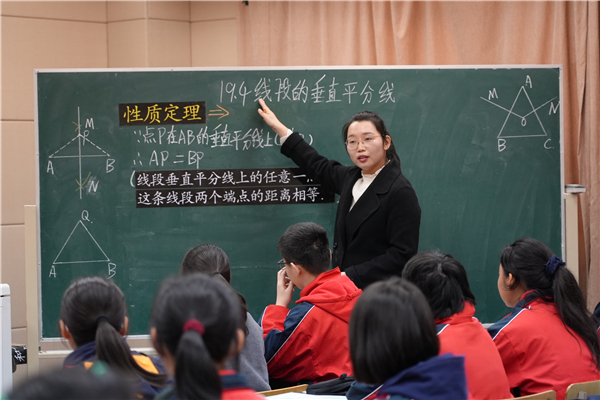 19.4 线段的垂直平分线
性质定理 ⇒
∵点P在AB的垂直平分线上
∴ AP = BP
(线段垂直平分线上的任意一
这条线段两个端点的距离相等.
M
P
A
B
N
Q
A
B
A
M
N
B
C